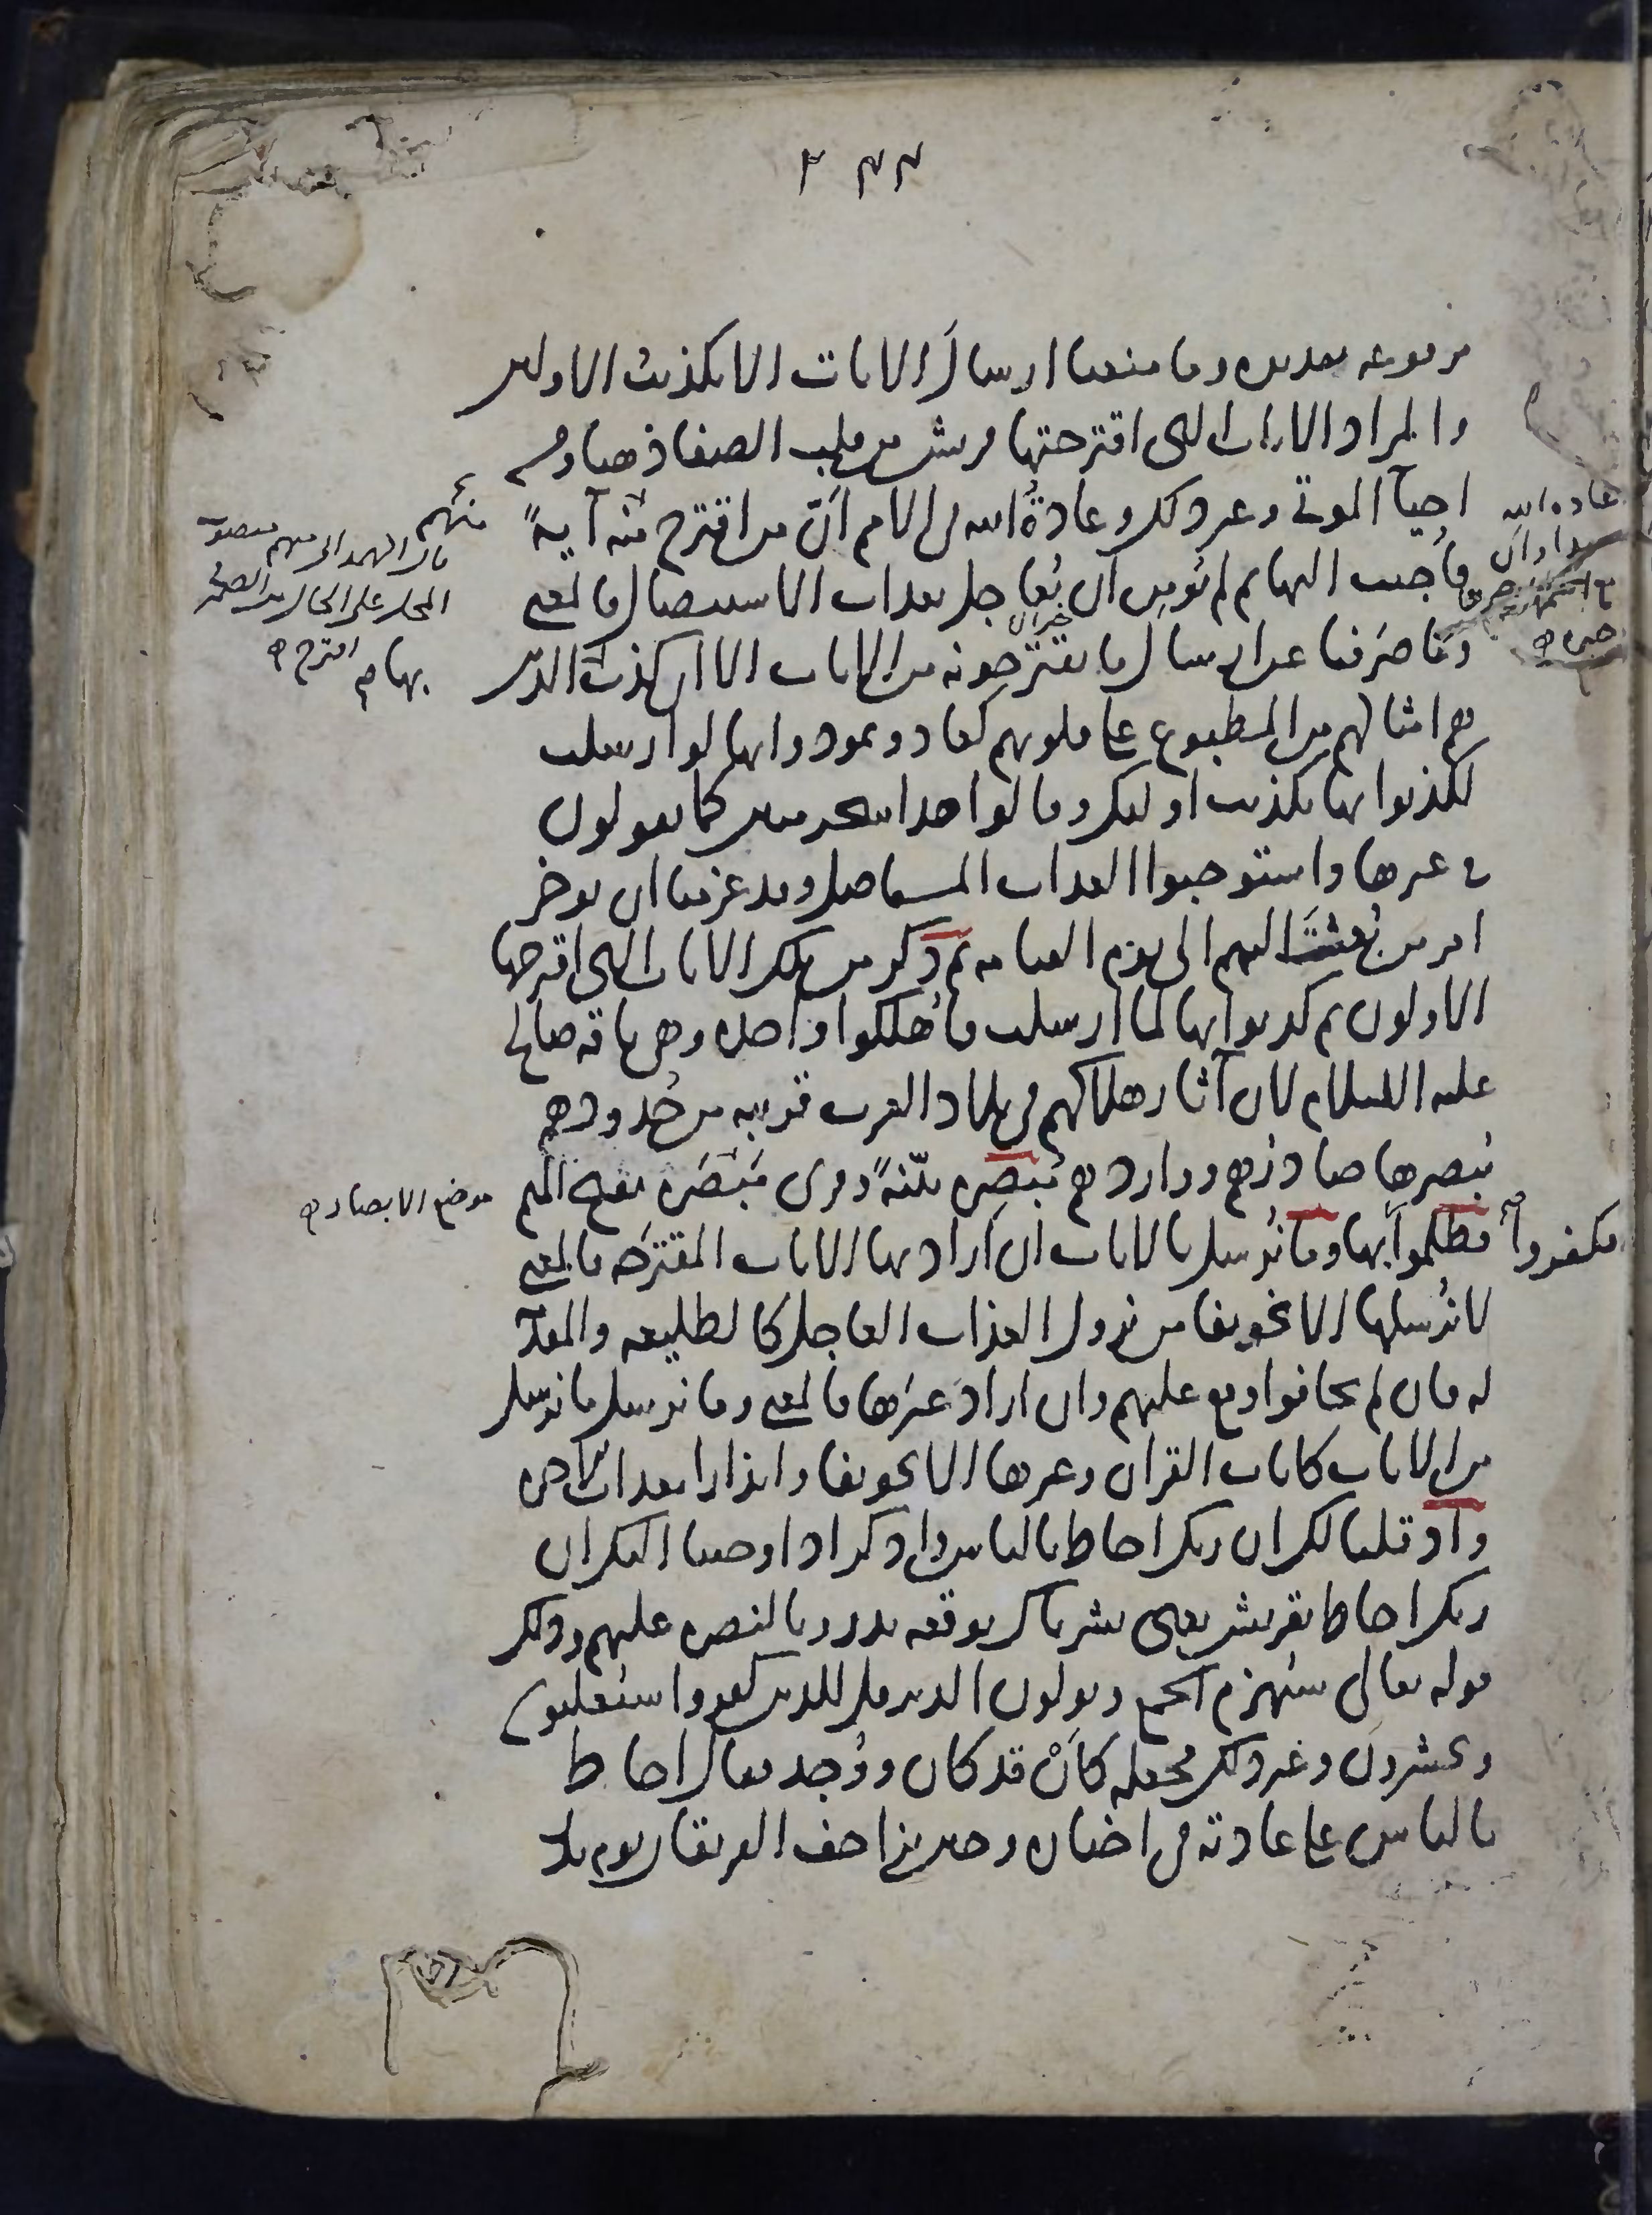 ٢٤٤
مرفوعه تقديره وما منعنا ارسال الايات الا تكذيب الاولين
والمراد الايات التى اقترحتها قريش من قلب الصفا ذهبا ومن
احيآ الموتى وغير ذلك وعادةُ الله فى الامم انّ من اقترح منهم آيةً
فاُجيب اليها ثم لم يُؤمِن ان يُعاجل بعذاب الاستيصال فالمعنى
وما صَرفنا عن ارسال ما يقترحونه من الايات الا ان كذب الذين
هم امثالهم من المطبوع على قلوبهم كعاد وثمود وانها لو ارسلت
لكذبوا بها تكذيب اوليك وقالوا هذا سحر مبين كما يقولون
فى غيرها واستوجبوا العذاب المستاصل وقد عزمنا ان نوخر
امر من بُعِثتَ اليهم الى يوم القيامه ثم ذكر من تلك الايات التى اقترحها
الاولون ثم كذبوا بها لما ارسلت فاُهلكوا واحده وهى ناقه صالح
عليه السلام لان آثار هلاكهم فى بلاد العرب قريبه من حُدودهم
يُبصرها صادرُهم وواردهم مُبصِره بيّنةً وقرى مَبْصَره بفتح الميم
فظلموا بها وما نُرسل بالايات ان اراد بها الايات المقترحه فالمعنى
لا نُرسلها الا تخويفا من نزول العذاب العاجل كالطليعه والمقدّمه
له فان لم يخافوا وقع عليهم وان اراد غيرها فالمعنى وما نرسل ما نرسل
من الايات كايات القران وغيرها الا تخويفا وانذارا بعذاب الاخره
واذ قلنا لك ان ربك احاط بالناس واذكر اذ اوحينا اليك ان
ربك احاط بقريش يعنى بشرناك بوقعه بدر وبالنصره عليهم وذلك
قوله تعالى سيُهزم الجمع ويولون الدبر قل للذين كفروا ستُغلبون
وتحشرون وغير ذلك فجعله كأنْ قد كان ووُجد فقال احاط
بالناس على عادته فى اخباره وحين تزاحف الفريقان يوم بدر
عاده الله
موضع الابصار
فكفروا